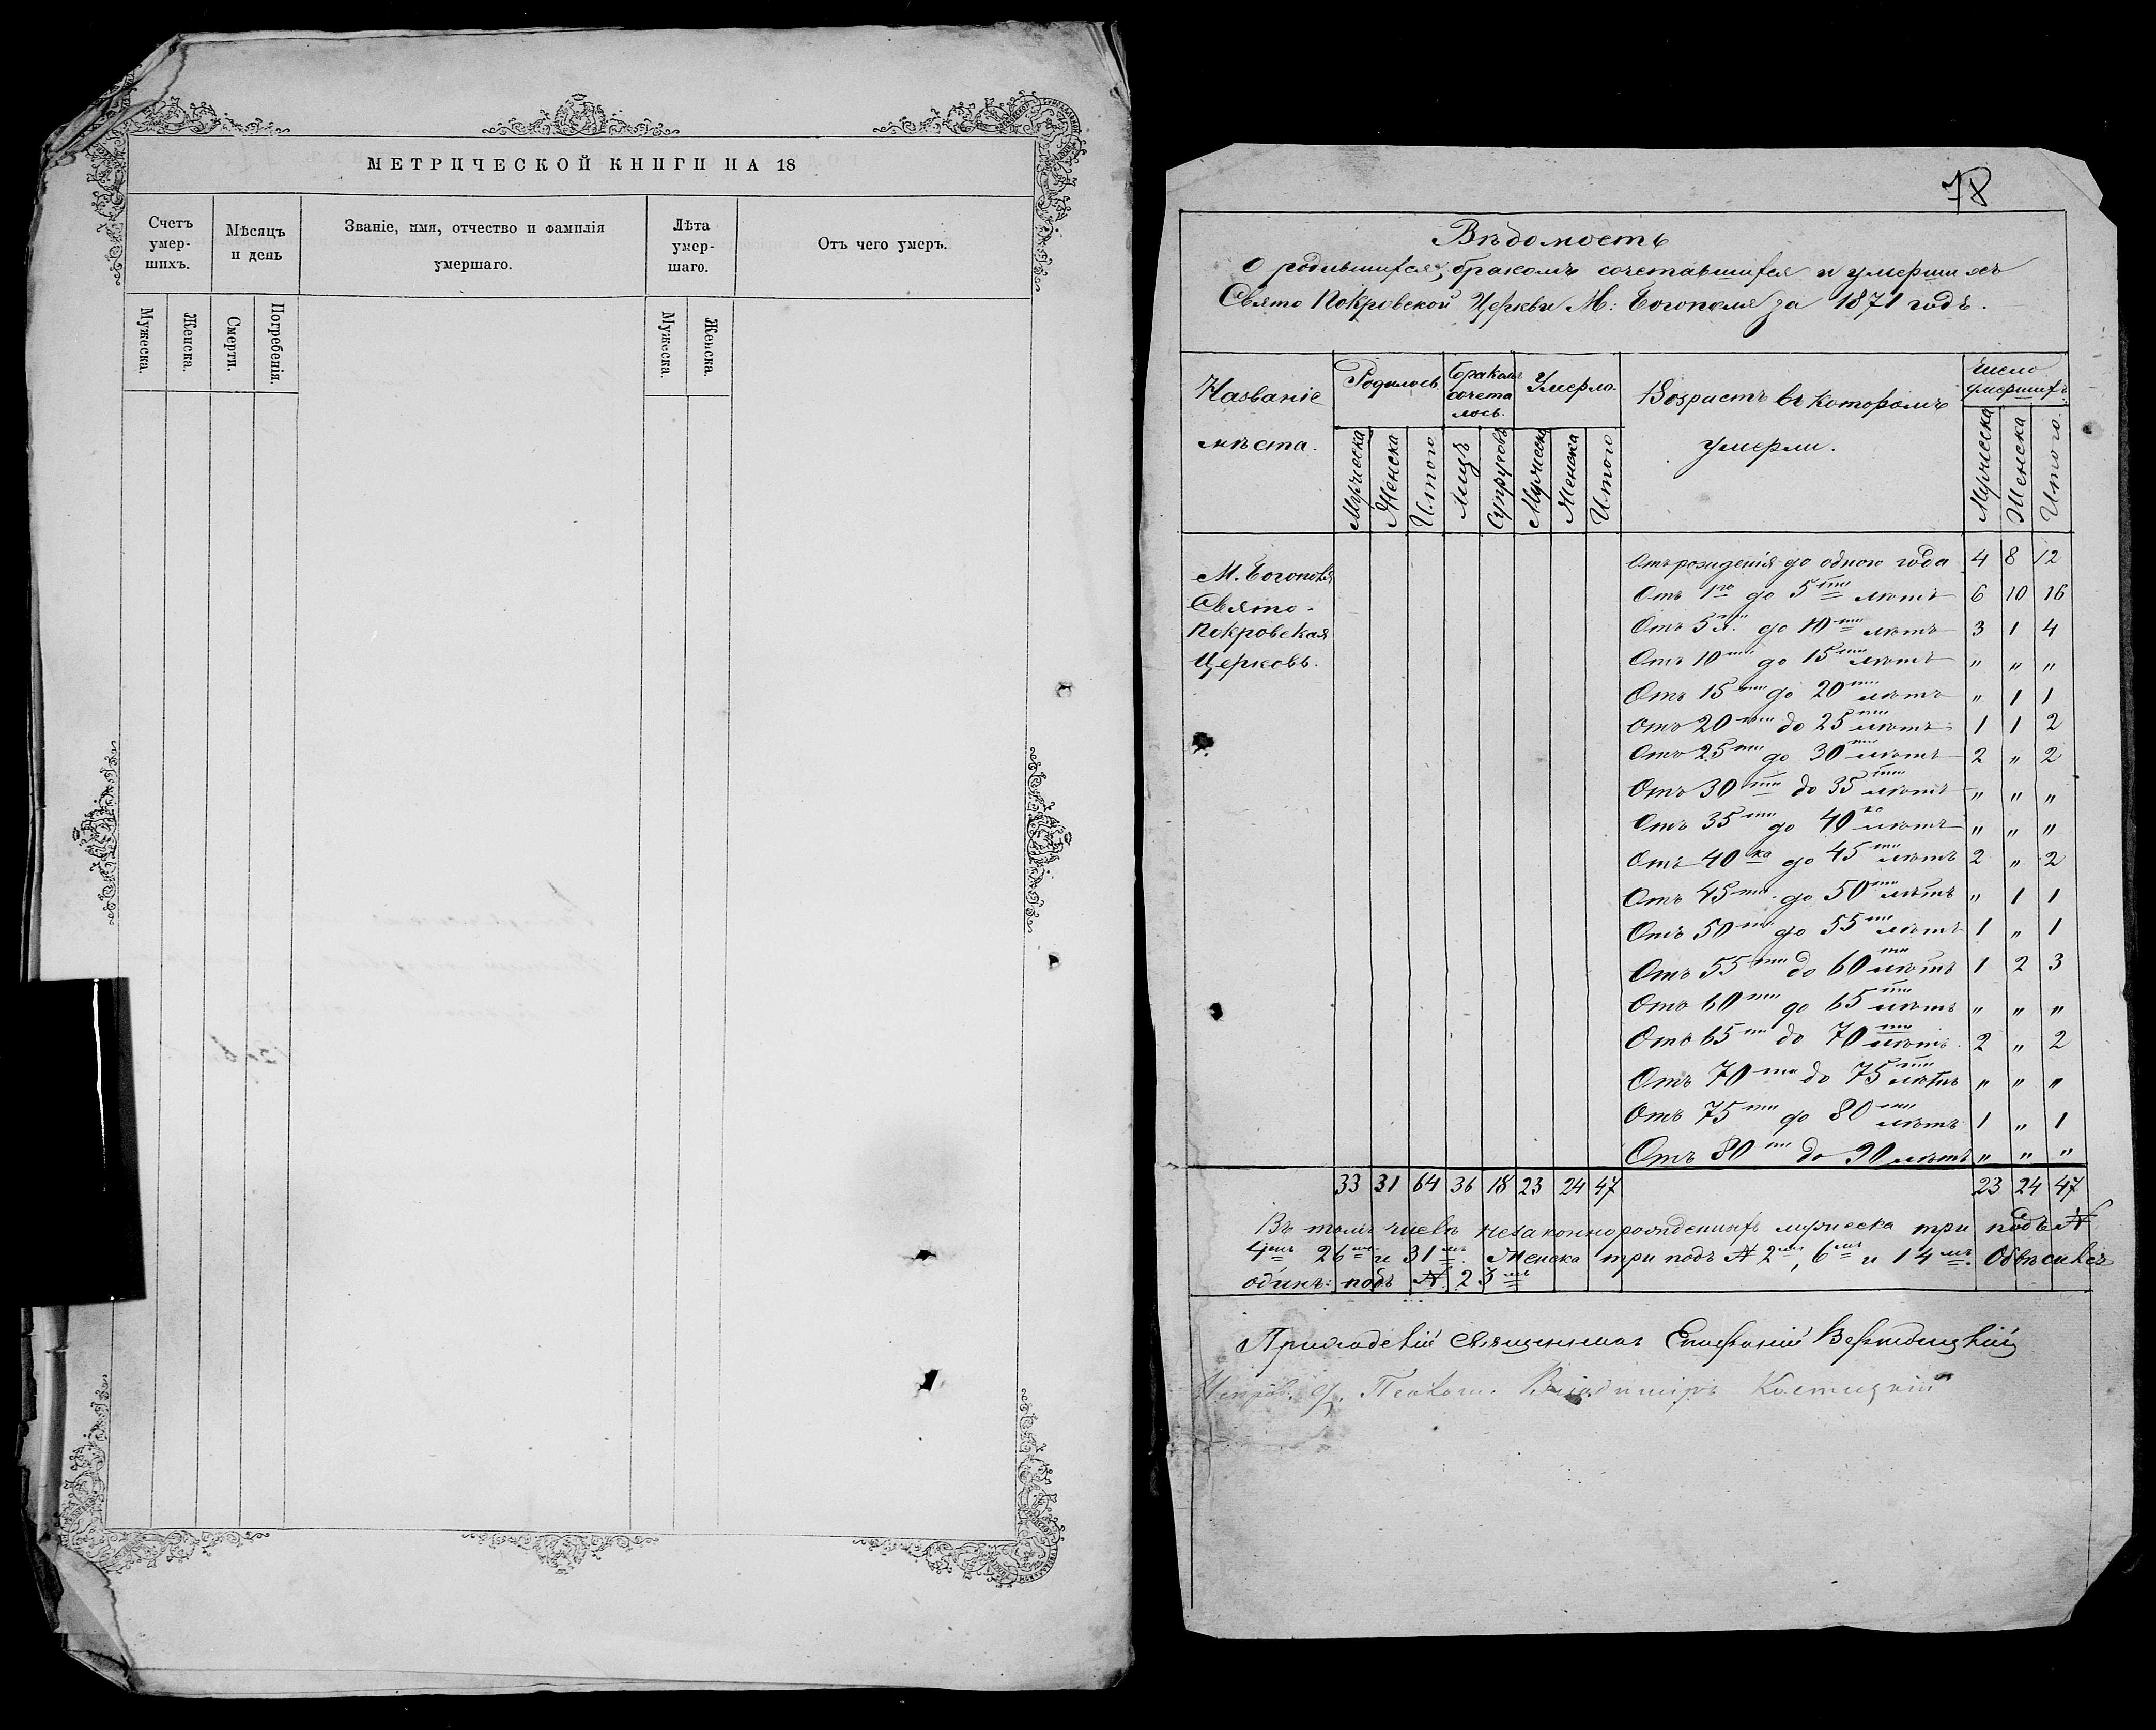 МЕТРИЧЕСКОЙ КНИГИ НА 18
Счетъ
умер-
шихъ.
Мѣсяцъ
и день
Званіе, имя, отчество и фамилія
умершаго.
Лѣта
умер-
шаго.
Отъ чего умеръ.
Мужеска.
Женска.
Смерти.
Погребенія.
Мужеска.
Женска.
78
Вѣдомость
О родившихся, бракомъ сочетавшихся и умершихъ
Свято Покровской Церкви М: Богополя за 1871 годъ.
Названіе
мѣста.
Родилось.
Бракомъ
сочета
лось.
Умерло.
Возрастъ въ которомъ
умерли.
Число
умершихъ.
Мужеска
Женска
Итого
Лицъ
Супруговъ
Мужеска
Женска
Итого
Мужеска
Женска
Итого
М. Богополя
Свято-
Покровская
Церковь.
Отъ рожденія до одного года 4 8 12
Отъ 1го до 5ти лѣтъ 6 10 16
Отъ 5ти до 10ти лѣтъ 3 1 4
Отъ 10ти до 15ти лѣтъ " " "
Отъ 15ти до 20ти лѣтъ " 1 1
Отъ 20ти до 25ти лѣтъ 1 1 2
Отъ 25ти до 30ти лѣтъ 2 " 2
Отъ 30ти до 35ти лѣтъ " " "
Отъ 35ти до 40ка лѣтъ " " "
Отъ 40ка до 45ти лѣтъ 2 " 2
Отъ 45ти до 50ти лѣтъ " 1 1
Отъ 50ти до 55ти лѣтъ 1 " 1
Отъ 55ти до 60ти лѣтъ 1 2 3
Отъ 60ти до 65ти лѣтъ " " "
Отъ 65ти до 70ти лѣтъ 2 " 2
Отъ 70ти до 75ти лѣтъ " " "
Отъ 75ти до 80ти лѣтъ 1 " 1
Отъ 80ти до 90 лѣтъ " " "
33 31 64 36 18 23 24 47 23 24 47
Въ томъ числѣ незаконнорожденныхъ мужеска три подъ №
4мъ 26мъ и 31мъ. Женска три подъ № 2мъ, 6мъ и 14мъ.
одинъ: подъ № 23мъ
Приходскій Священникъ Епифаній
Владиміръ Костецкій